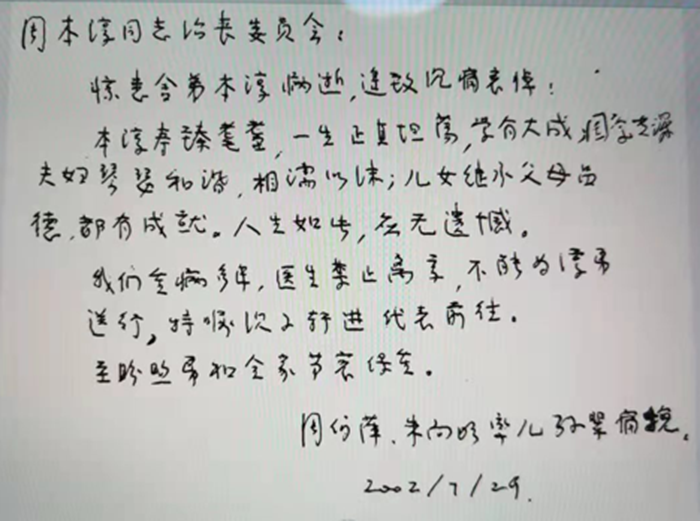 周本淳同志治丧委员会：
惊悉舍弟本淳病逝，遥致沉痛哀悼！
本淳寿臻耄耋，一生正直坦荡，学有大成
夫妇琴瑟和谐，相濡以沫；儿女继承父母品
德，都有成就。人生如此，应无遗憾。
我们重病多年，医生禁止离京，不能为淳弟
送行，特派次子轩进代表前往。
至盼照弟和全家节哀保重。
周伯萍、朱向明率儿孙辈痛挽。
2002/7/29.